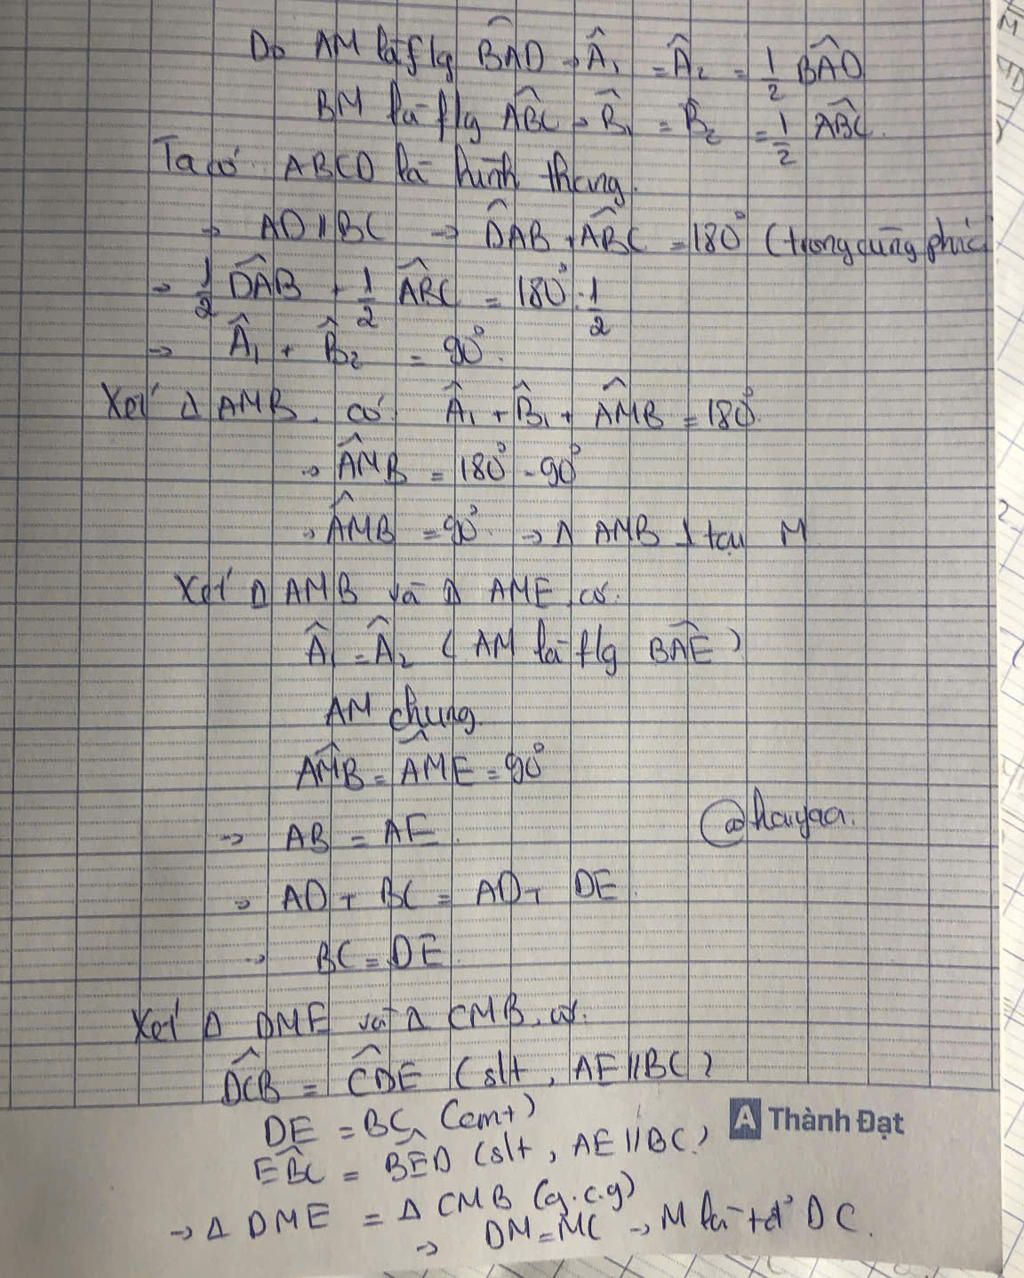 Do AM là f/g BAD → Â₁ = Â₂ = 1/2 BÂD
BM là f/g ABC → B̂₁ = B̂₂ = 1/2 ABC.
Ta có ABCD là hình thang.
→ AD // BC → DAB + ABC = 180° (trong cùng phía
→ 1/2 DAB + 1/2 ABC = 180°. 1/2
→ Â₁ + B̂₂ = 90°.
Xét Δ AMB có Â₁ + B̂₁ + AMB = 180°.
→ AMB = 180° - 90°
→ AMB = 90° → Δ AMB ⊥ tại M
Xét Δ AMB và Δ AME có.
Â₁ = Â₂ ( AM là f/g BAE )
AM chung.
AMB = AME = 90°
→ AB = AE.
@haiyaa.
→ AD + BC = AD + DE.
→ BC = DE.
Xét Δ DME và Δ CMB, có.
DCB = CDE (slt, AE // BC)
DE = BC (cmt)
A Thành Đạt
EBC = BED (slt, AE // BC)
→ Δ DME = Δ CMB (g.c.g)
→ DM = MC → M là tđ' DC.